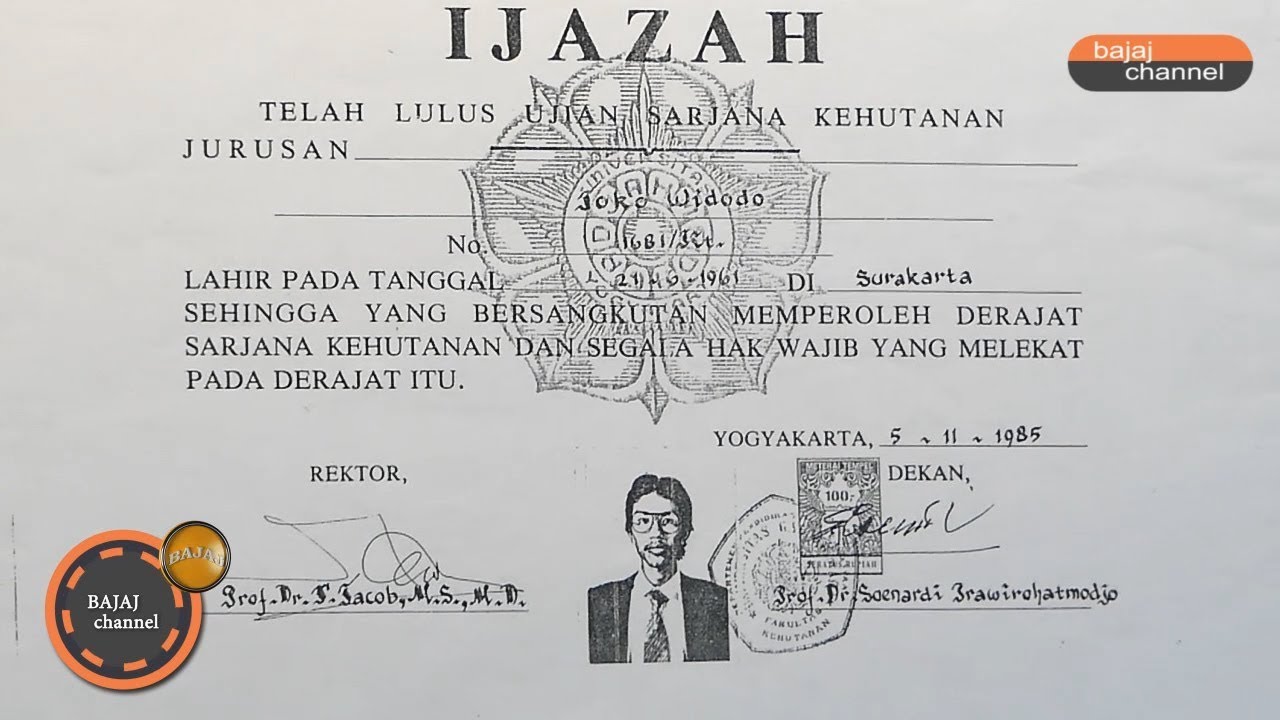 IJAZAH
bajaj
channel
TELAH LULUS UJIAN SARJANA KEHUTANAN
JURUSAN
UNIVERSITAS
Joko Widodo
No. 1681/KT.
LAHIR PADA TANGGAL 21-6-1961 DI Surakarta
SEHINGGA YANG BERSANGKUTAN MEMPEROLEH DERAJAT
SARJANA KEHUTANAN DAN SEGALA HAK WAJIB YANG MELEKAT
PADA DERAJAT ITU.
YOGYAKARTA, 5-11-1985
REKTOR,
DEKAN,
100,-
BAJAJ
BAJAJ
channel
Prof. Dr. T. Jacob, M.S., M.D.
Prof. Dr. Soenardi Prawirohatmodjo
FAKULTAS
KEHUTANAN